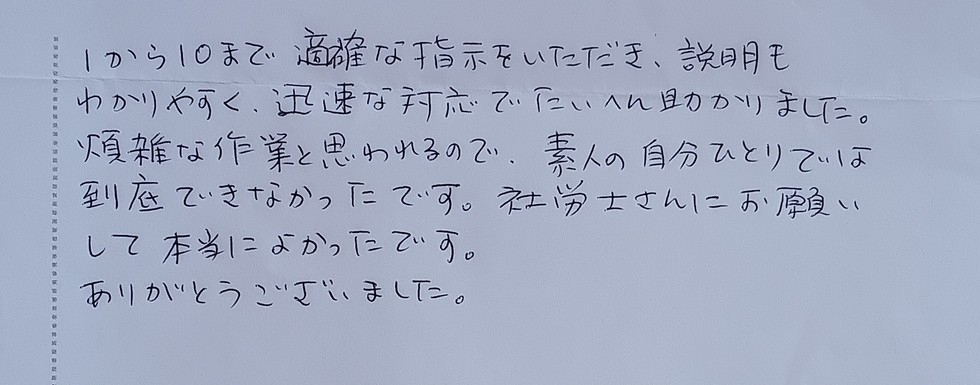 1から10まで適確な指示をいただき、説明も
わかりやすく、迅速な対応でたいへん助かりました。
煩雑な作業と思われるので、素人の自分ひとりでは
到底できなかったです。社労士さんにお願い
して本当によかったです。
ありがとうございました。